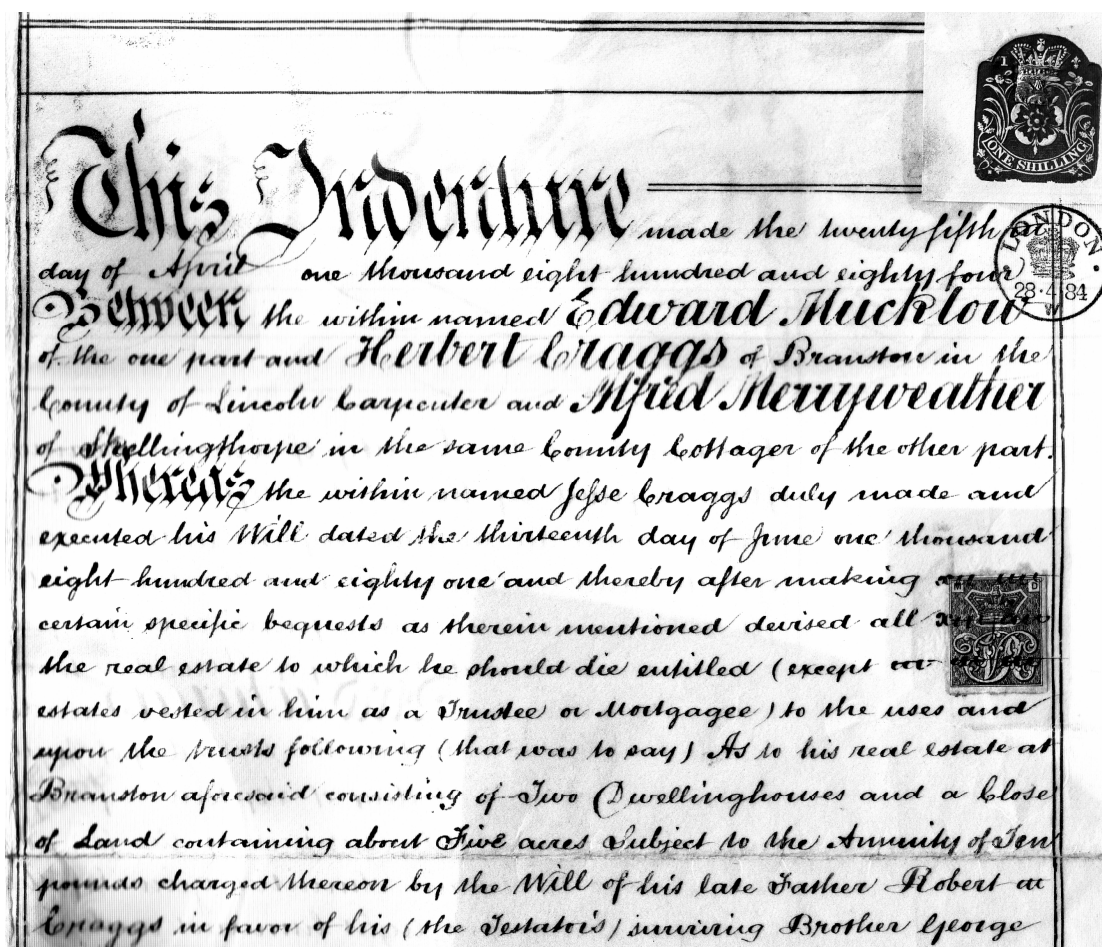 1
ONE SHILLING
This Indenture made the twenty fifth
LONDON
day of April one thousand eight hundred and eighty four
28·4·84
W
Between the within named Edward Mucklow
of the one part and Herbert Craggs of Branston in the
County of Lincoln Carpenter and Alfred Merryweather
of Skellingthorpe in the same County Cottager of the other part.
Whereas the within named Jesse Craggs duly made and
executed his Will dated the thirteenth day of June one thousand
eight hundred and eighty one and thereby after making
certain specific bequests as therein mentioned devised all
the real estate to which he should die entitled (except
estates vested in him as a Trustee or Mortgagee) to the uses and
upon the trusts following (that was to say) As to his real estate at
Branston aforesaid consisting of Two Dwellinghouses and a Close
of Land containing about Five acres Subject to the Annuity of Ten
pounds charged thereon by the Will of his late Father Robert
Craggs in favor of his (the Testator's) surviving Brother George